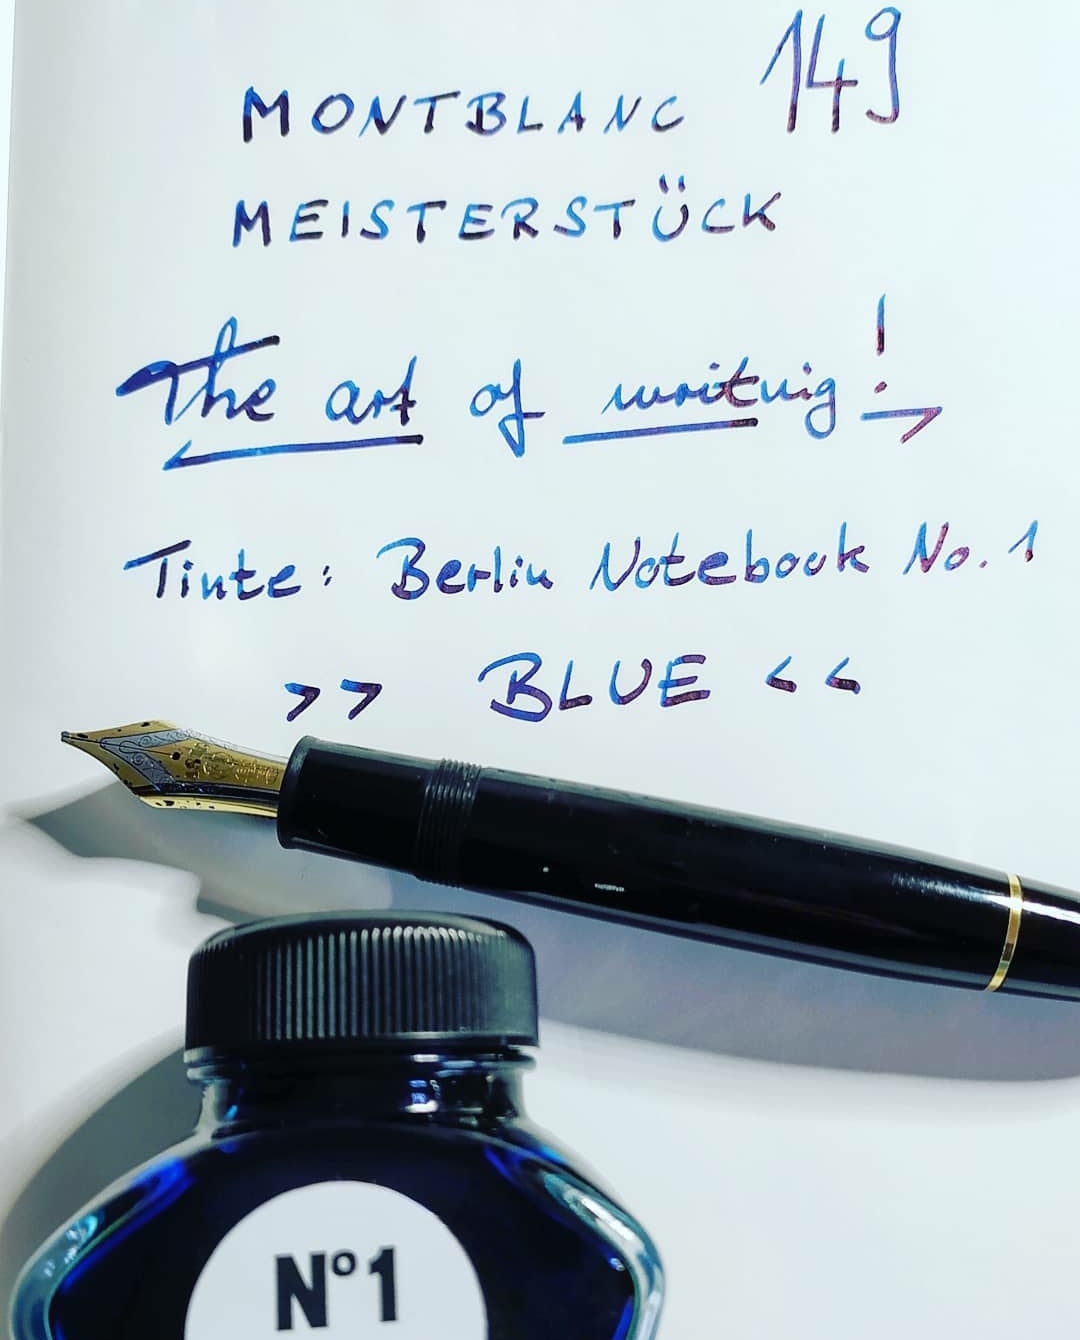 MONTBLANC 149
MEISTERSTÜCK
The art of writing!
Tinte: Berlin Notebook No. 1
>> BLUE <<
N°1